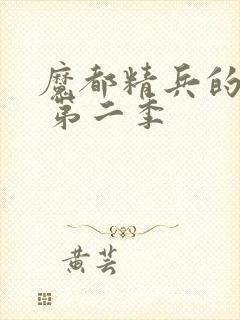 魔都精兵的
第二季
黄芸